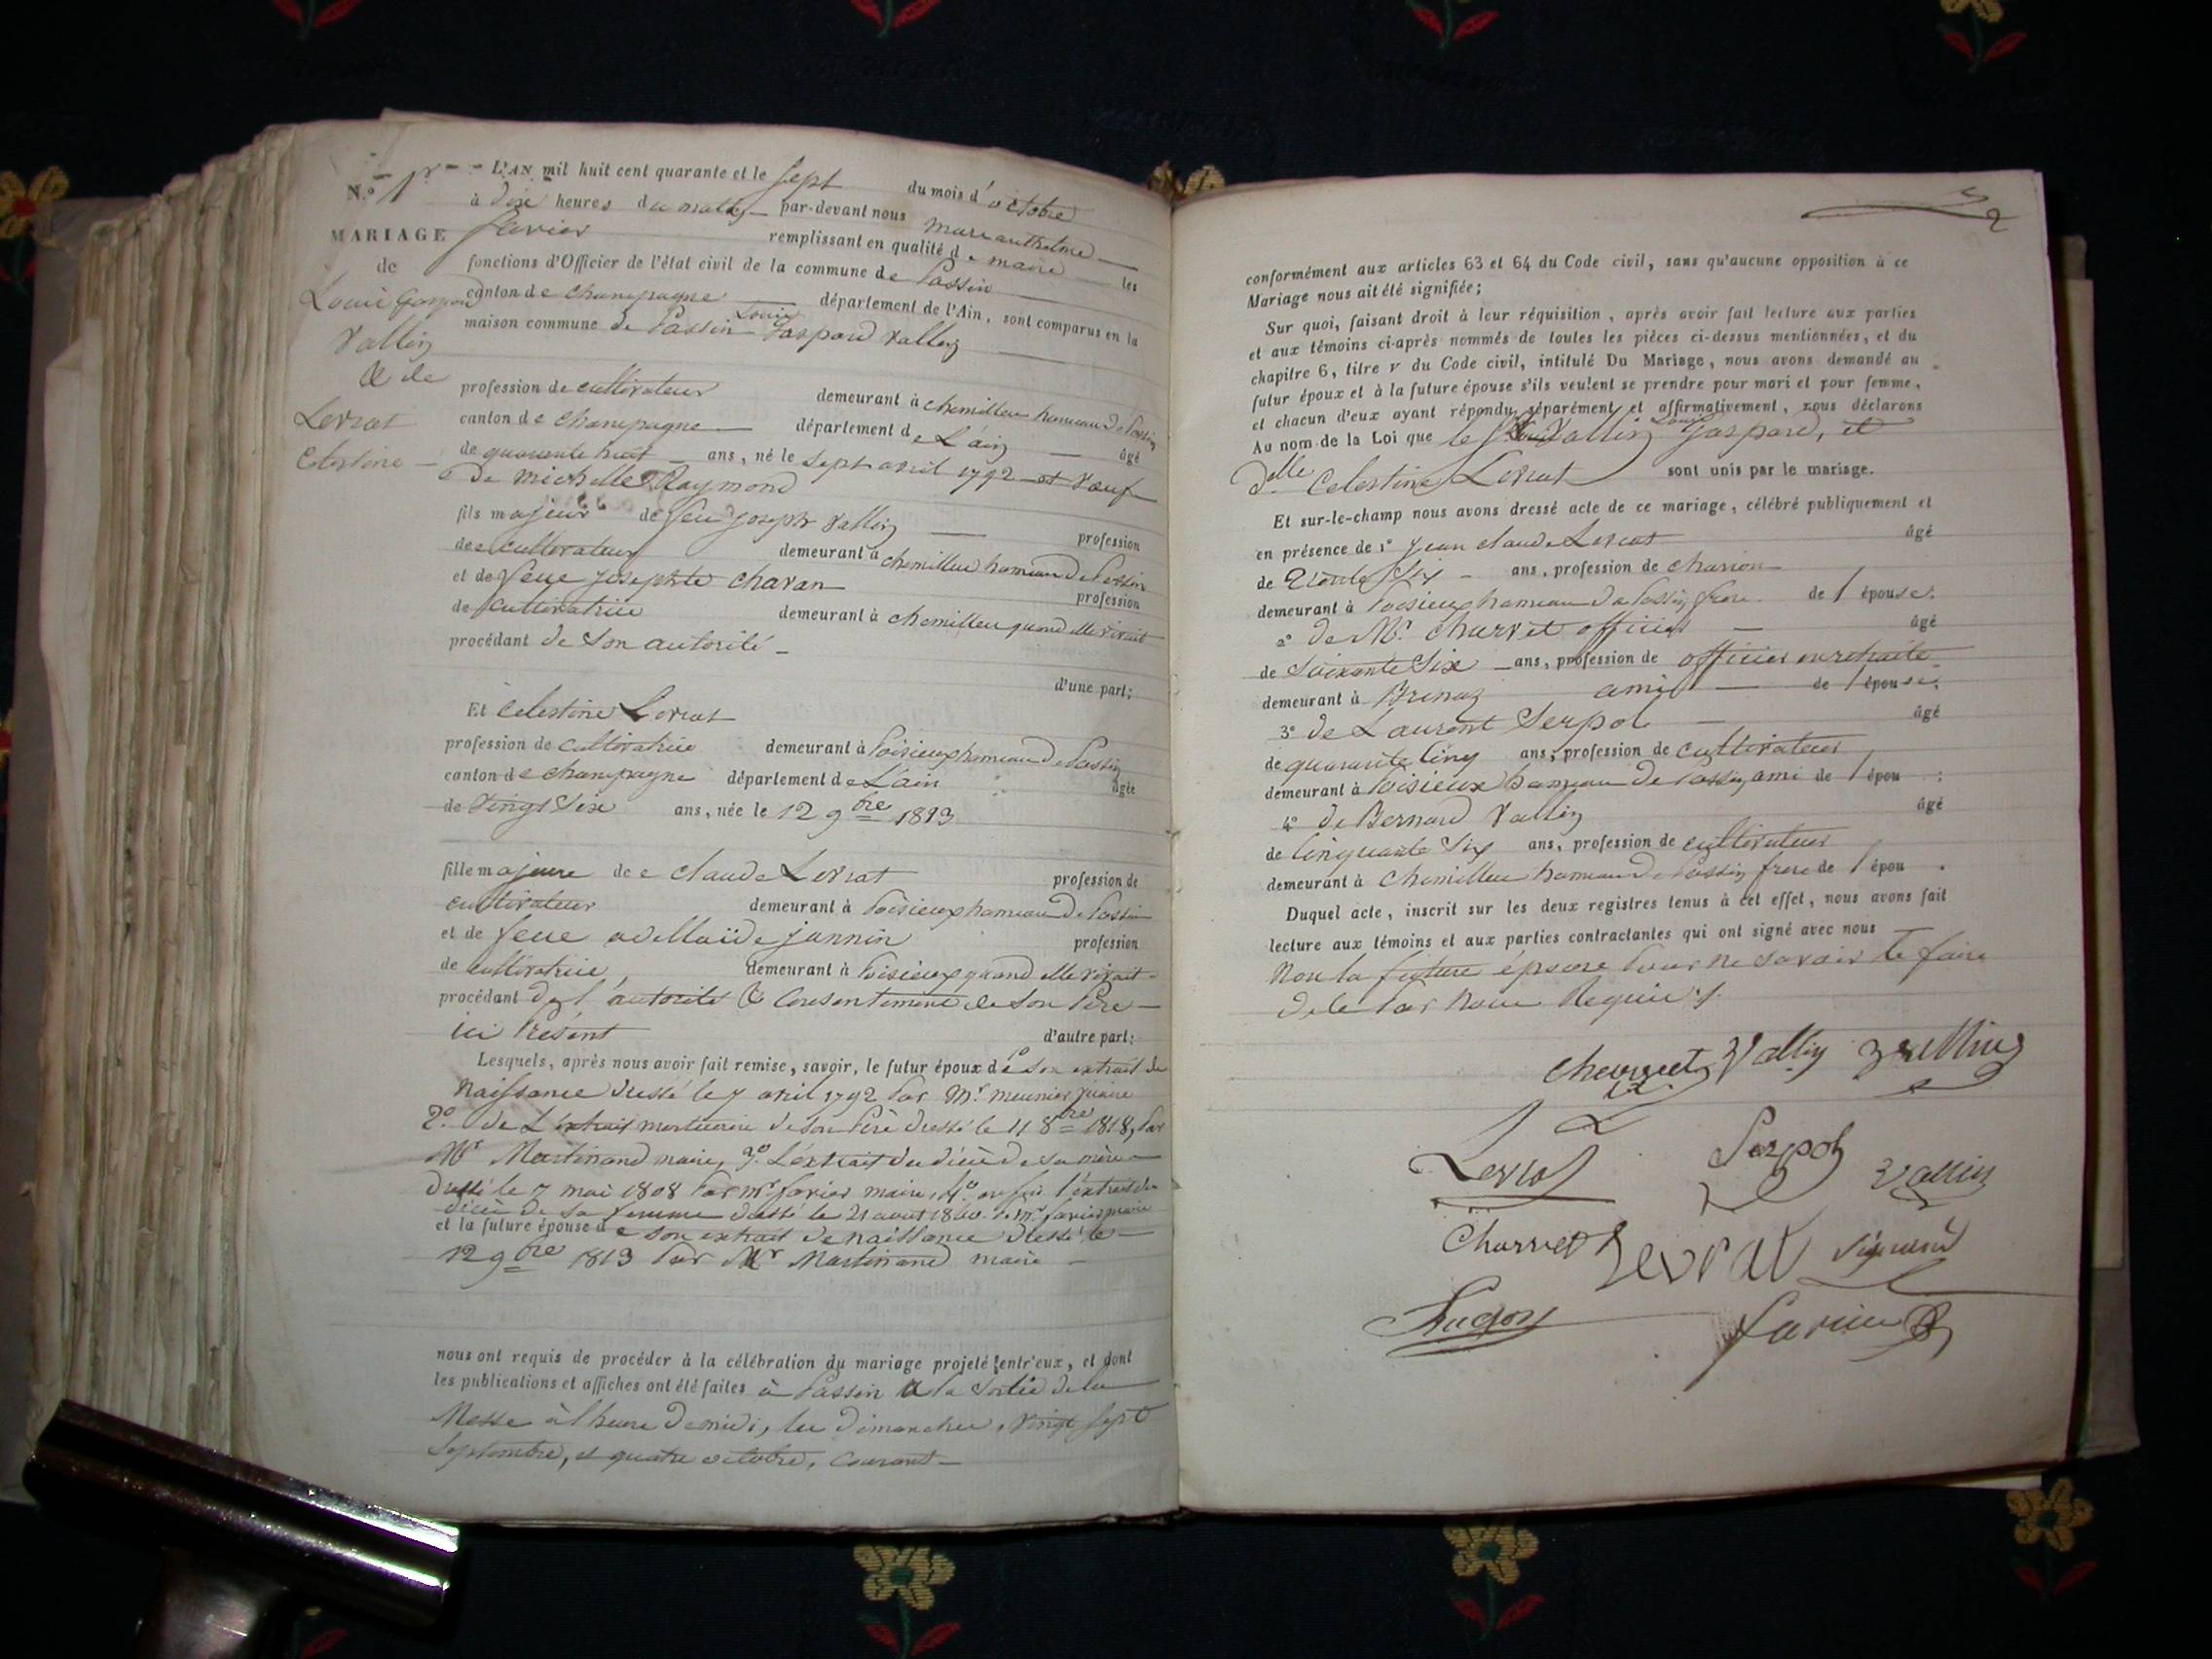 N.º 1r L'AN mil huit cent quarante et le sept du mois d'octobre
à dix heures du matin par-devant nous marc anthelme
MARIAGE favier remplissant en qualité de maire les
de fonctions d'Officier de l'état civil de la commune de Passin
Louis Gaspard canton de champagne département de l'Ain, sont comparus en la
Vallin maison commune de Passin Louis Gaspard Vallin
& de profession de cultivateur demeurant à chemillieu hameau de Passin
Levrat canton de champagne département de L'ain âgé
Celestine de quarante huit ans, né le sept avril 1792 et Vœuf
de michelle Raymond
fils majeur de feu joseph Vallin profession
de cultivateur demeurant à chemillieu hameau de Passin
et de feue josephte charan profession
de cultivatrice demeurant à chemillieu quand elle vivait
procédant de Son autorité
d'une part;
Et Celestine Levrat
profession de cultivatrice demeurant à Poisieux hameau de Passin
canton de champagne département de L'ain âgée
de Vingt Six ans, née le 12 9bre 1813
fille majeure de claude Levrat profession de
cultivateur demeurant à Poisieux hameau de Passin
et de feue adellaïde jannin profession
de cultivatrice, demeurant à Poisieux quand elle vivait
procédant de l'autorité & Consentement de Son Père
ici Présent d'autre part;
Lesquels, après nous avoir fait remise, savoir, le futur époux de 1º Son extrait de
Naissance dressé le 7 avril 1792 Par Mr. meunier maire
2º. de L'extrait mortuaire de son Père dressé le 11 8bre 1818, Par
Mr Martinand maire, 3º. L'extrait du décès de sa mère
dressé le 7 mai 1808 Par mr. favier maire, 4º. enfin l'extrait du
décès de sa femme dressé le 21 aout 1840. P. mr. favier maire
et la future épouse de son extrait de naissance dressé le
12 9bre 1813 Par Mr Martinand maire
nous ont requis de procéder à la célébration du mariage projeté entr'eux, et dont
les publications et affiches ont été faites à Passin à la Sortie de la
Messe à l'heure de midi, les dimanches, Vingt Sept
Septembre, et quatre octobre, Courant
2
conformément aux articles 63 et 64 du Code civil, sans qu'aucune opposition à ce
Mariage nous ait été signifiée;
Sur quoi, faisant droit à leur réquisition, après avoir fait lecture aux parties
et aux témoins ci-après nommés de toutes les pièces ci-dessus mentionnées, et du
chapitre 6, titre v du Code civil, intitulé Du Mariage, nous avons demandé au
futur époux et à la future épouse s'ils veulent se prendre pour mari et pour femme,
et chacun d'eux ayant répondu séparément et affirmativement, nous déclarons
Au nom de la Loi que le Vallin Louis Gaspard, et
delle Celestine Levrat sont unis par le mariage.
Et sur-le-champ nous avons dressé acte de ce mariage, célébré publiquement et
en présence de 1º jean claude Levrat âgé
de Trente Six ans, profession de charron
demeurant à Poisieux hameau de Passin frere de l'épouse.
2º de Mr. Charvet officier âgé
de Soixante Six ans, profession de officier en retraite
demeurant à Brenaz ami de l'épouse;
3º de Laurent Serpol âgé
de quarante Cinq ans, profession de cultivateur
demeurant à Poisieux hameau de Passin, ami de l'épou ;
4º de Bernard Vallin âgé
de Cinquante Six ans, profession de cultivateur
demeurant à Chemillieu hameau de Passin frere de l'épou .
Duquel acte, inscrit sur les deux registres tenus à cet effet, nous avons fait
lecture aux témoins et aux parties contractantes qui ont signé avec nous
Non la future épouse Pour ne savoir le faire
de ce Par Nous Requise
Charvet Vallin Vallin
Levrat Serpol Vallin
Charvet Levrat
Hugon favier